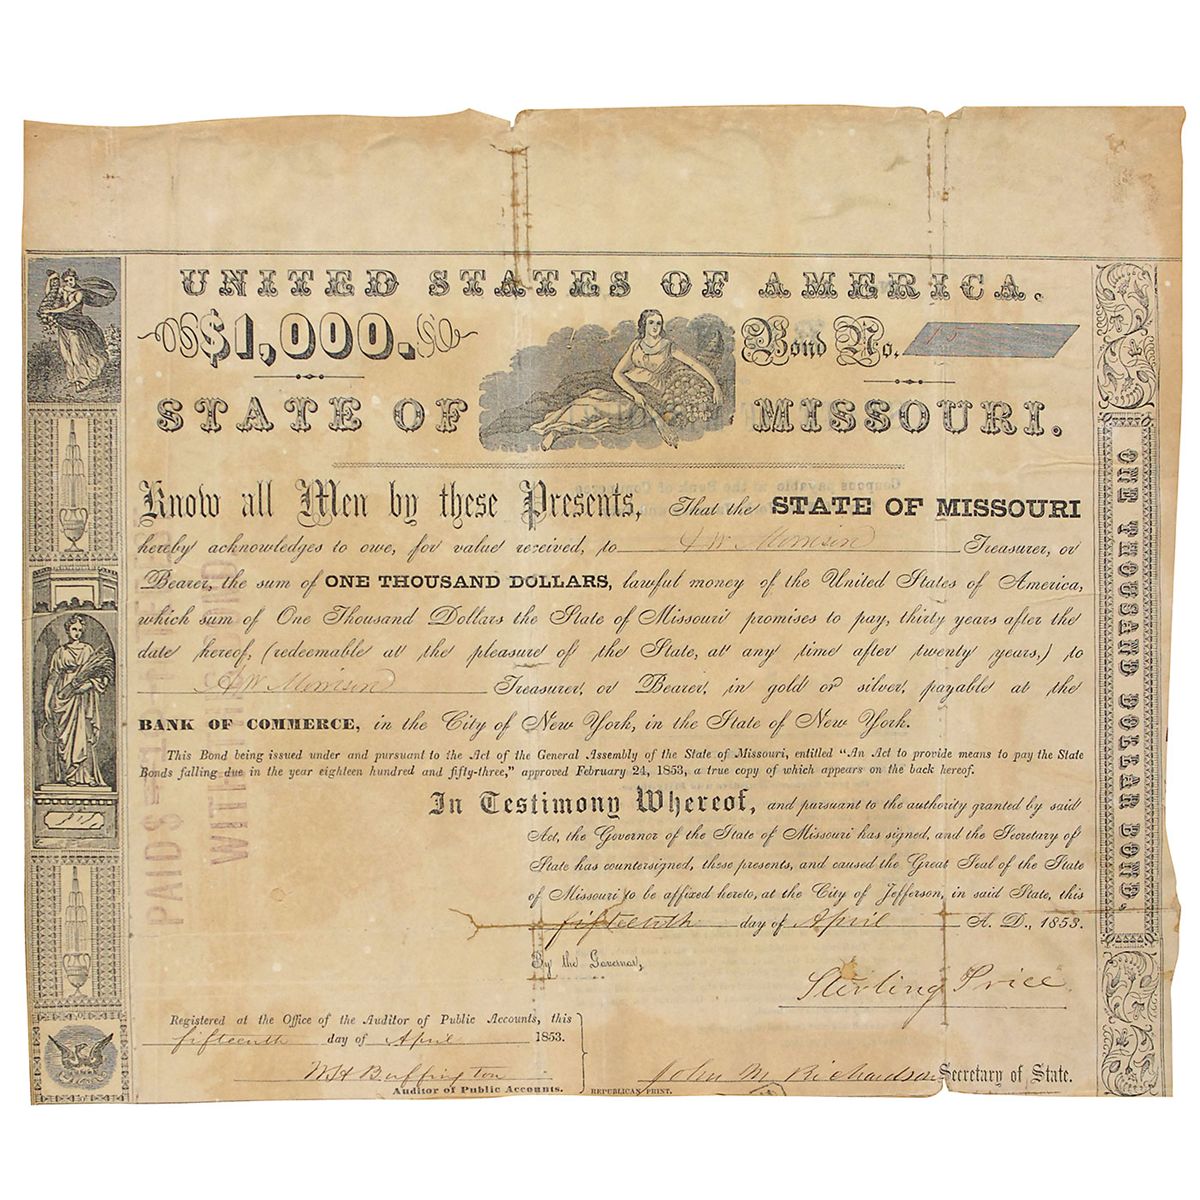 UNITED STATES OF AMERICA.
$1,000.
Bond No. 15
STATE OF MISSOURI.
Know all Men by these Presents, That the STATE OF MISSOURI
hereby acknowledges to owe, for value received, to A W Morrison Treasurer, or
Bearer, the sum of ONE THOUSAND DOLLARS, lawful money of the United States of America,
which sum of One Thousand Dollars the State of Missouri promises to pay, thirty years after the
date hereof, (redeemable at the pleasure of the State, at any time after twenty years,) to
A W Morrison Treasurer, or Bearer, in gold or silver, payable at the
BANK OF COMMERCE, in the City of New York, in the State of New York.
This Bond being issued under and pursuant to the Act of the General Assembly of the State of Missouri, entitled "An Act to provide means to pay the State
Bonds falling due in the year eighteen hundred and fifty-three," approved February 24, 1853, a true copy of which appears on the back hereof.
In Testimony Whereof, and pursuant to the authority granted by said
Act, the Governor of the State of Missouri has signed, and the Secretary of
State has countersigned, these presents, and caused the Great Seal of the State
of Missouri to be affixed hereto, at the City of Jefferson, in said State, this
fifteenth day of April A. D., 1853.
By the Governor,
Sterling Price
Registered at the Office of the Auditor of Public Accounts, this
fifteenth day of April 1853.
W H Buffington
Auditor of Public Accounts.
REPUBLICAN PRINT.
John M Richardson Secretary of State.
ONE THOUSAND DOLLAR BOND.
PAID &
WITH